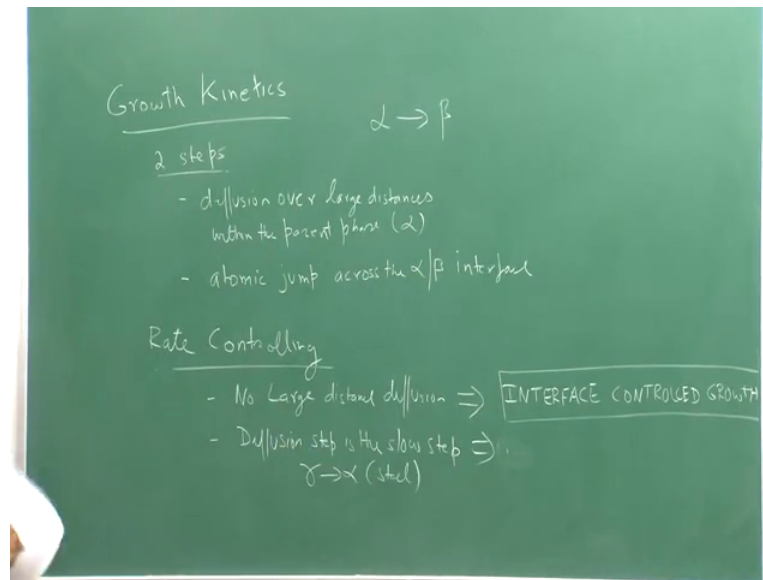 Growth Kinetics
α → β
2 steps
- diffusion over large distances
within the parent phase (α)
- atomic jump across the α/β interface
Rate Controlling
- No Large distance diffusion ⇒ INTERFACE CONTROLLED GROWTH
- Diffusion step is the slow step ⇒
γ → α (steel)